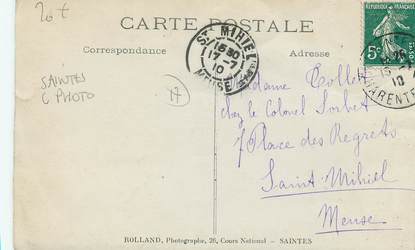 20 €
CARTE POSTALE
Correspondance
Adresse
ST MIHIEL
16 30
17-7
10
MEUSE
RÉPUBLIQUE FRANÇAISE
5c
10
CHARENTE
SAINTES
C PHOTO
17
Madame Collet
chez le Colonel Sorbet
7 Place des Regrets
Saint Mihiel
Meuse
ROLLAND, Photographe, 26, Cours National - SAINTES